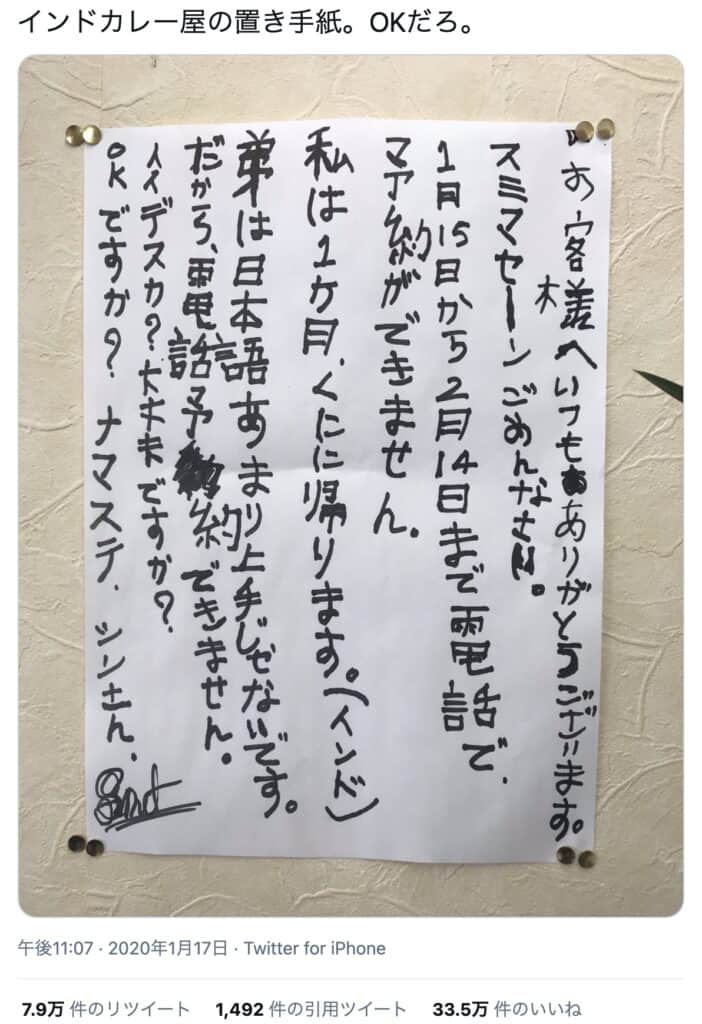 インドカレー屋の置き手紙。OKだろ。
お客様へいつもありがとうございます。
スミマセーンごめんなさい。
1月15日から2月14日まで電話で、
予約ができません。
私は1ケ月、くにに帰ります。(インド)
弟は日本語あまり上手じゃないです。
だから、電話予約できません。
イイデスカ?大丈夫ですか?
OKですか?ナマステ、シンさん、
午後11:07 · 2020年1月17日 · Twitter for iPhone
7.9万 件のリツイート 1,492 件の引用ツイート 33.5万 件のいいね